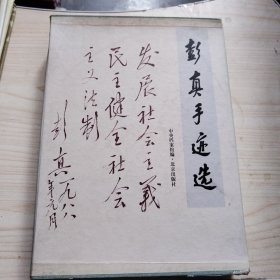 彭真手迹选
中央档案馆编·北京出版社
发展社会主義
民主健全社会
主义法制
彭真一九八八
年元月